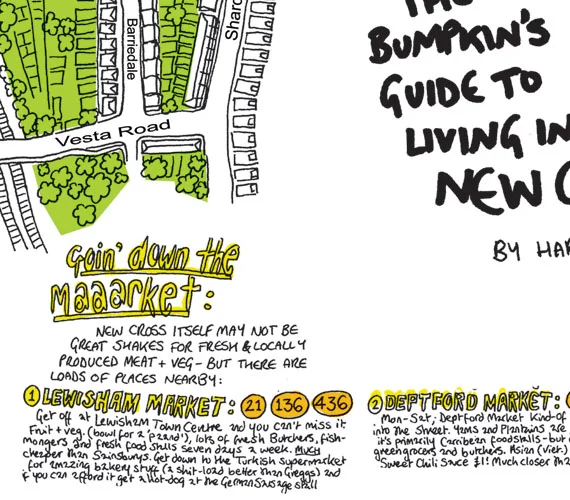 Barriedale
Shard
Vesta Road
THE
BUMPKIN'S
GUIDE TO
LIVING IN
NEW C
BY HAR
Goin' down the
maaarket:
NEW CROSS ITSELF MAY NOT BE
GREAT SHAKES FOR FRESH & LOCALLY
PRODUCED MEAT + VEG - BUT THERE ARE
LOADS OF PLACES NEARBY:
1 LEWISHAM MARKET: 21 136 436
Get off at Lewisham Town Centre and you can't miss it.
Fruit + veg. (bowl for a 'pzand'), lots of fresh Butchers, fish-
mongers and fresh food stalls seven days a week. MUCH
cheaper than Sainsburys. Get down to the Turkish supermarket
for amazing bakery stuff (a shit-load better than Greggs) and
if you can afford it get a hot-dog at the German Sausage stall
2 DEPTFORD MARKET:
Mon-Sat; Deptford Market kind-of
into the street. Yams and Plantains are
it's primarily Carribean foodstalls - but
greengrocers and butchers. Asian (Viet)
Sweet Chili Sauce £1! Much closer than